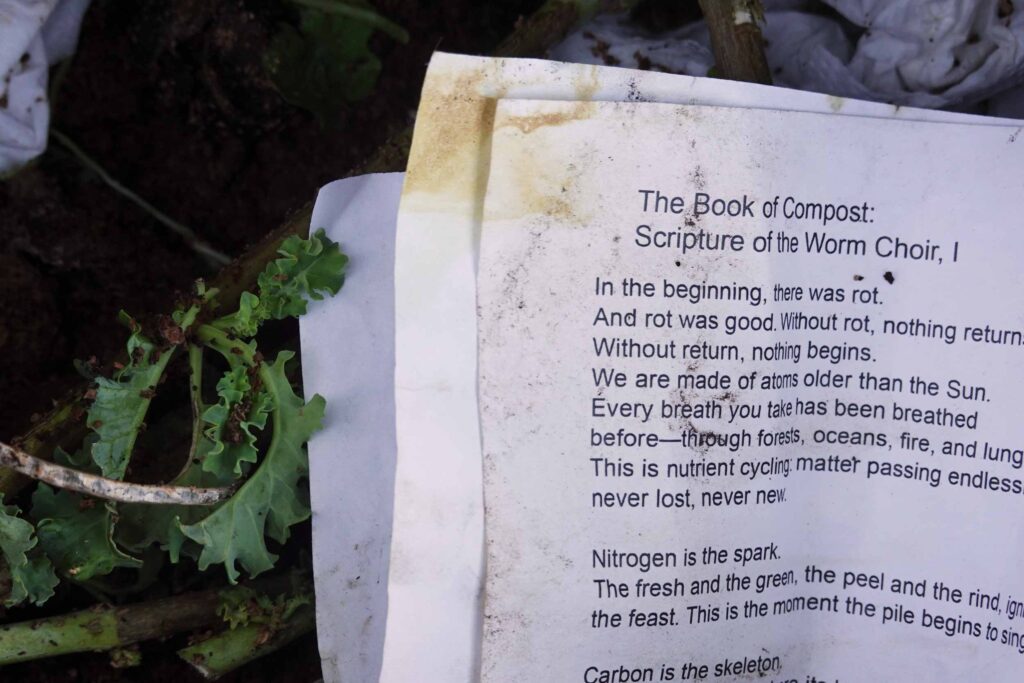 The Book of Compost:
Scripture of the Worm Choir, I
In the beginning, there was rot.
And rot was good. Without rot, nothing
Without return, nothing begins.
We are made of atoms older than the Sun.
Every breath you take has been breathed
before—through forests, oceans, fire, and
This is nutrient cycling: matter passing
never lost, never new.
Nitrogen is the spark.
The fresh and the green, the peel and the rind,
the feast. This is the moment the pile begins to
Carbon is the skeleton.